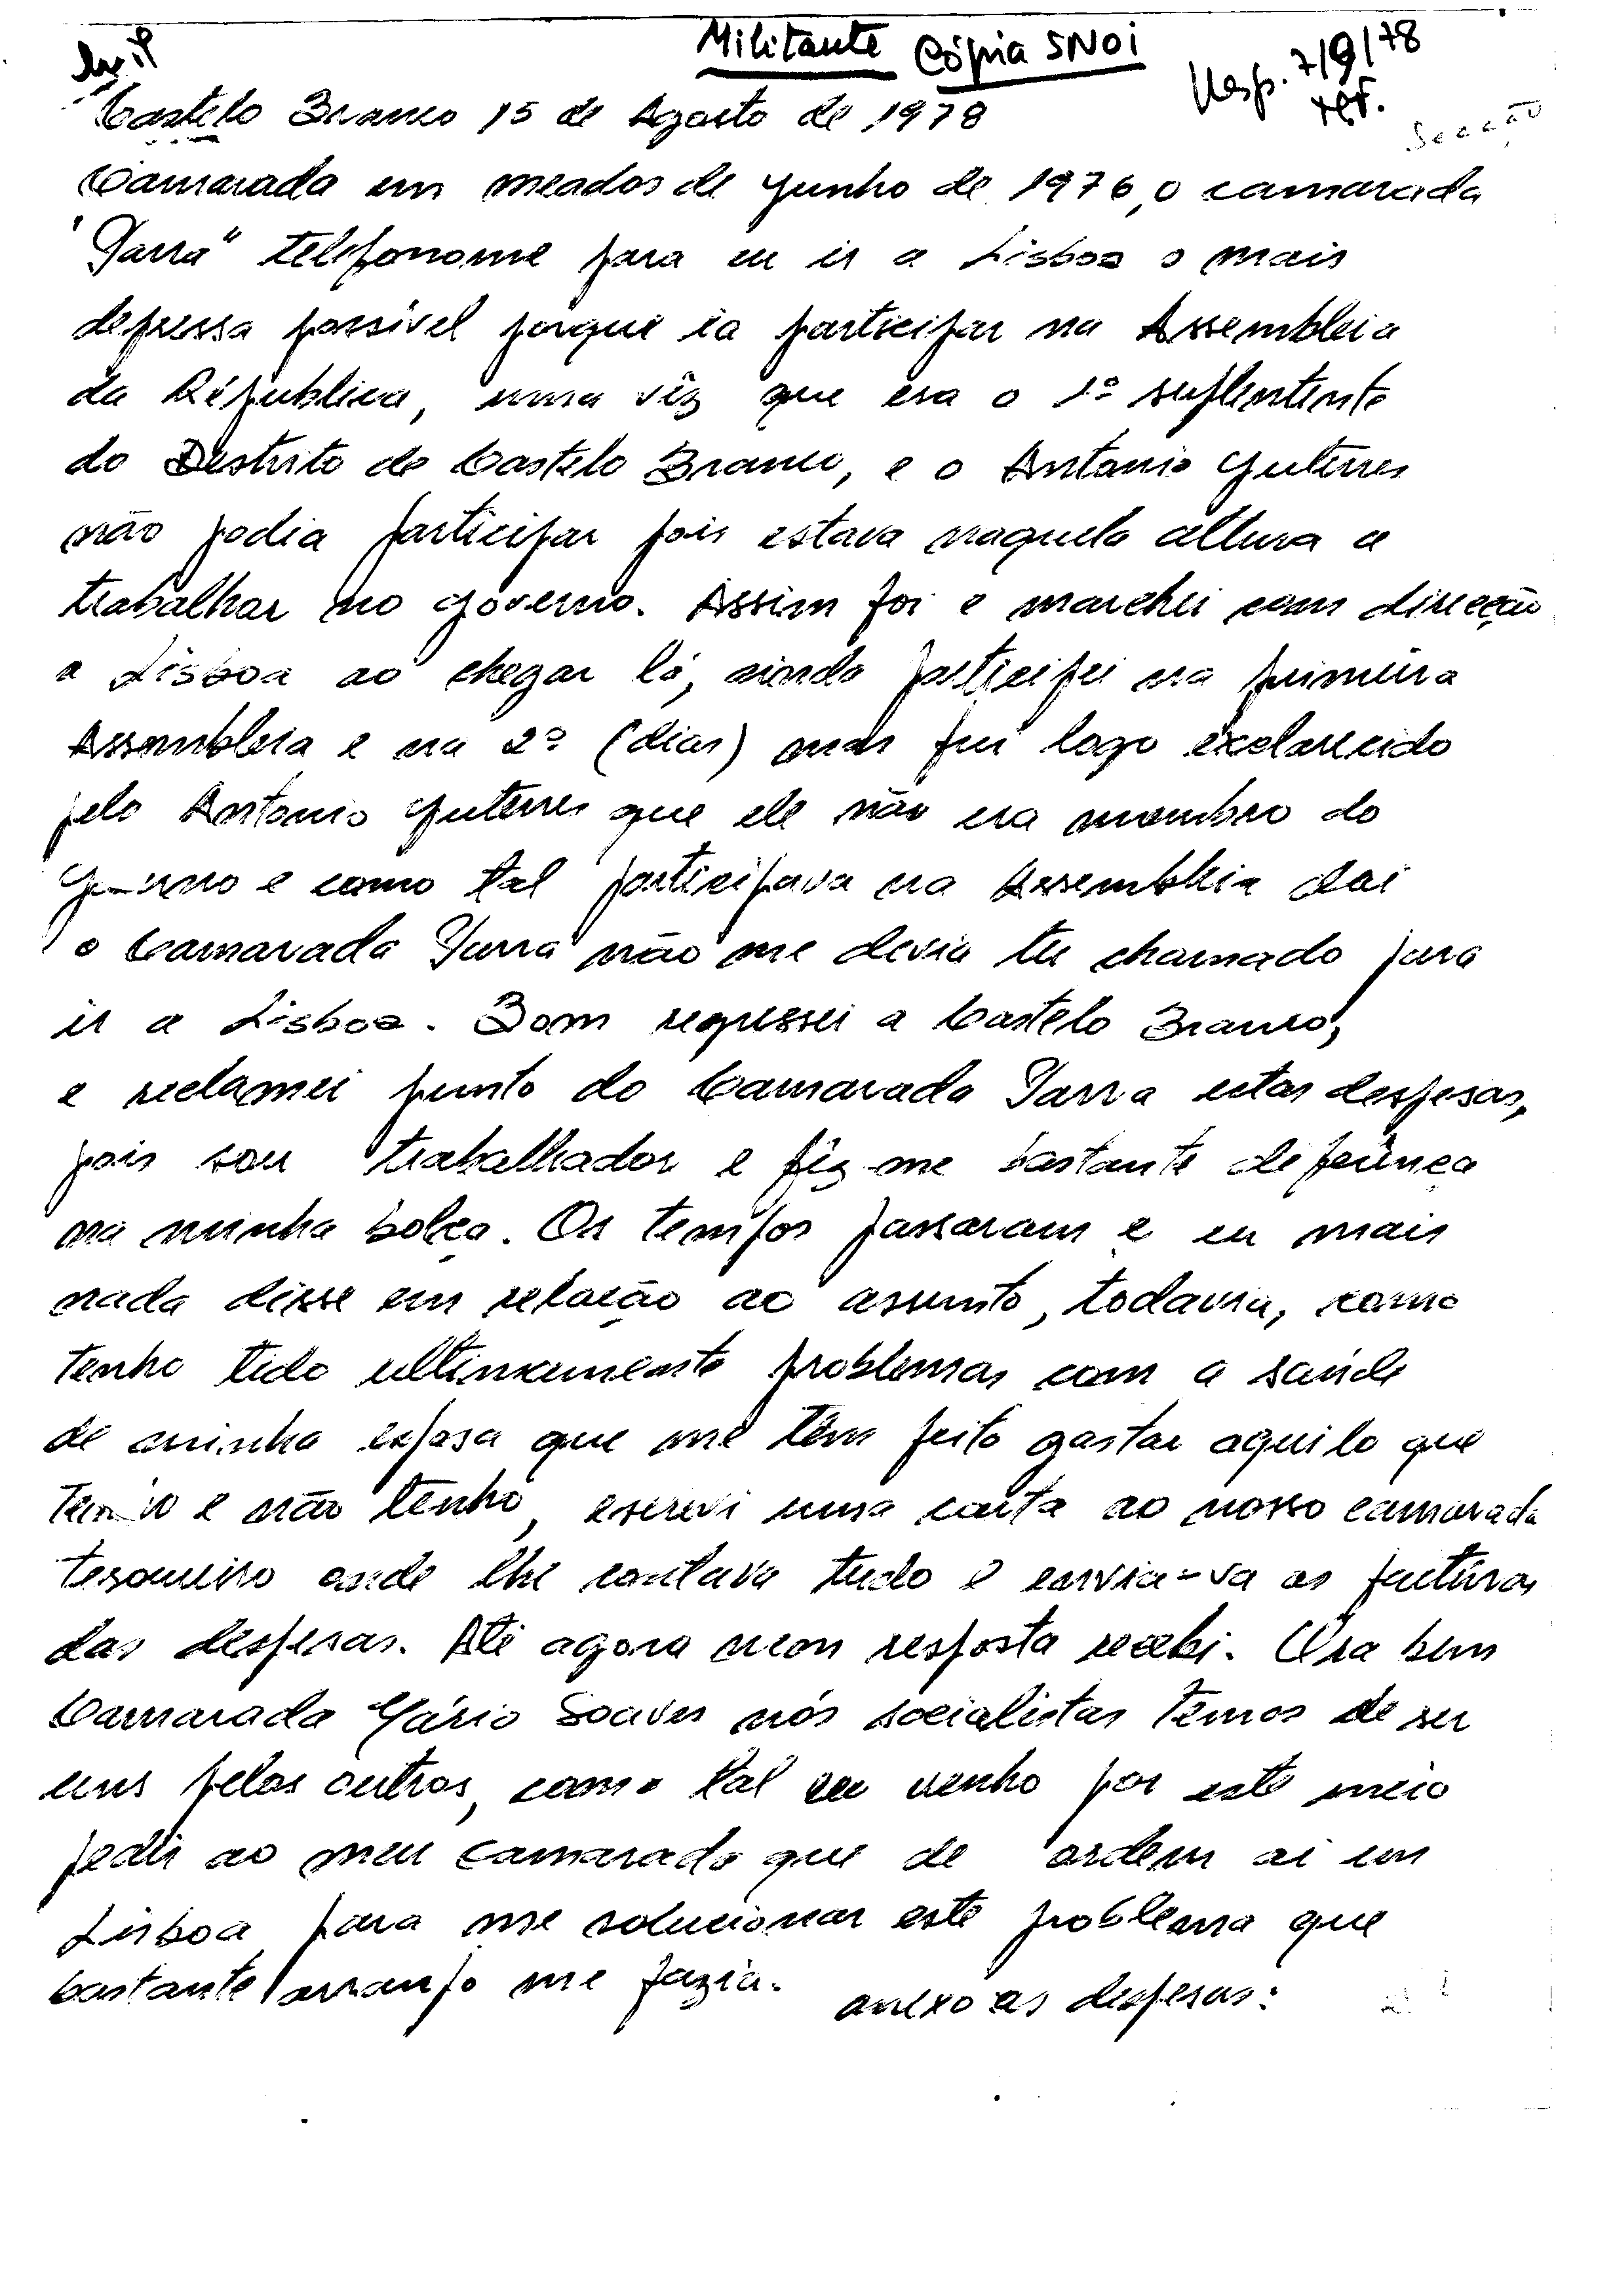 Militante Cópia SNOI
Resp. 7/9/78
ref.
Secção
Castelo Branco 15 de Agosto de 1978
Camarada em meados de Junho de 1976, o camarada
"Parra" telefonome para eu ir a Lisboa o mais
depressa possivel porque ia participar na Assembleia
da Répública, uma vêz que era o 1º suplentente
do Destrito de Castelo Branco, e o Antonio Guterres
não podia participar pois estava naquela altura a
trabalhar no governo. Assim foi e marchei com direcção
a Lisboa ao chegar lá, ainda participei na primeira
Assembleia e na 2ª (dias) mas fui logo exclarecido
pelo Antonio Guterres que ele não era membro do
Governo e como tal participava na Assembleia dai
o Camarada Parra não me devia ter chamado para
ir a Lisboa. Bom regressei a Castelo Branco,
e reclamei junto do Camarada Parra estas despesas,
pois sou trabalhador e fêz-me bastante diferença
na minha bolça. Os tempos passaram e eu mais
nada disse em relação ao assunto, todavia, como
tenho tido ultimamente problemas com a saúde
de minha esposa que me têm feito gastar aquilo que
tenho e não tenho, escrevi uma carta ao nosso camarada
tesoureiro onde lhe contava tudo e envia-va as facturas
das despesas. Até agora nem resposta recebi. Ora bem
Camarada Mário Soares nós socialistas temos de ser
uns pelos outros, como tal eu venho por este meio
pedir ao meu camarada que de ordem ai em
Lisboa para me solucionar este problema que
bastante arranjo me fazia. anexo as despesas: